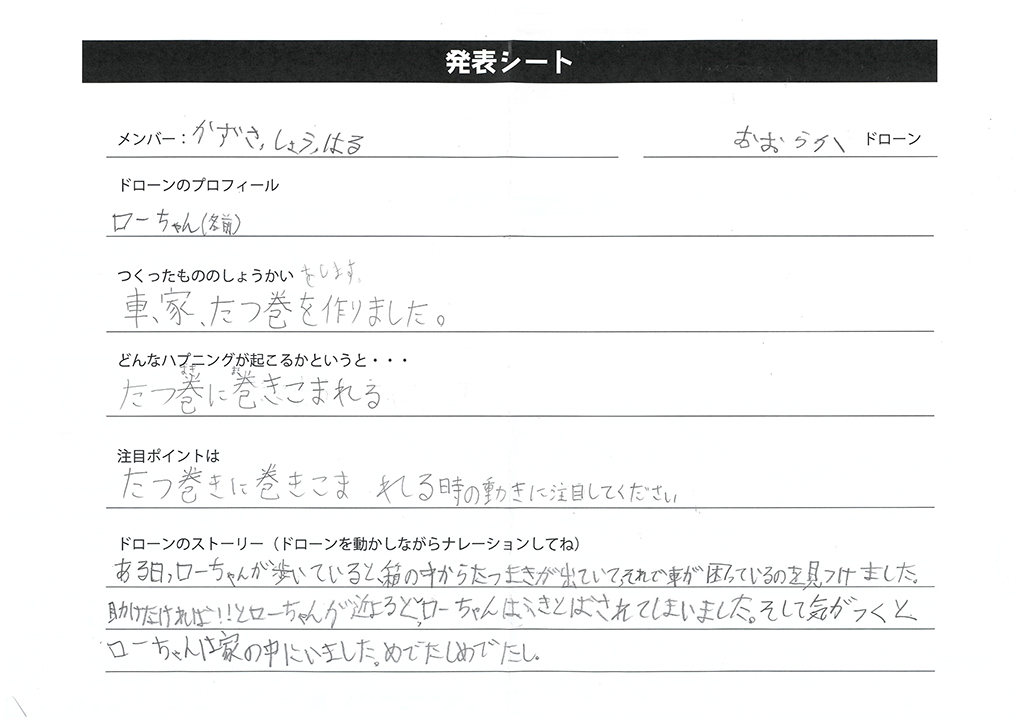 発表シート
メンバー：かずさ,しょう,はる
おおらか ドローン
ドローンのプロフィール
ローちゃん(名前)
つくったもののしょうかい をします。
車、家、たつ巻を作りました。
どんなハプニングが起こるかというと・・・
たつ巻に巻きこまれる
注目ポイントは
たつ巻きに巻きこま れる時の動きに注目してください
ドローンのストーリー（ドローンを動かしながらナレーションしてね）
ある日,ローちゃんが歩いていると、箱の中からたつまきが出ていて、それで車が困っているのを見つけました。
助けたければ!!とローちゃんが近よると、ローちゃんはふきとばされてしまいました。そして気がつくと、
ローちゃんは家の中にいました。めでたしめでたし.